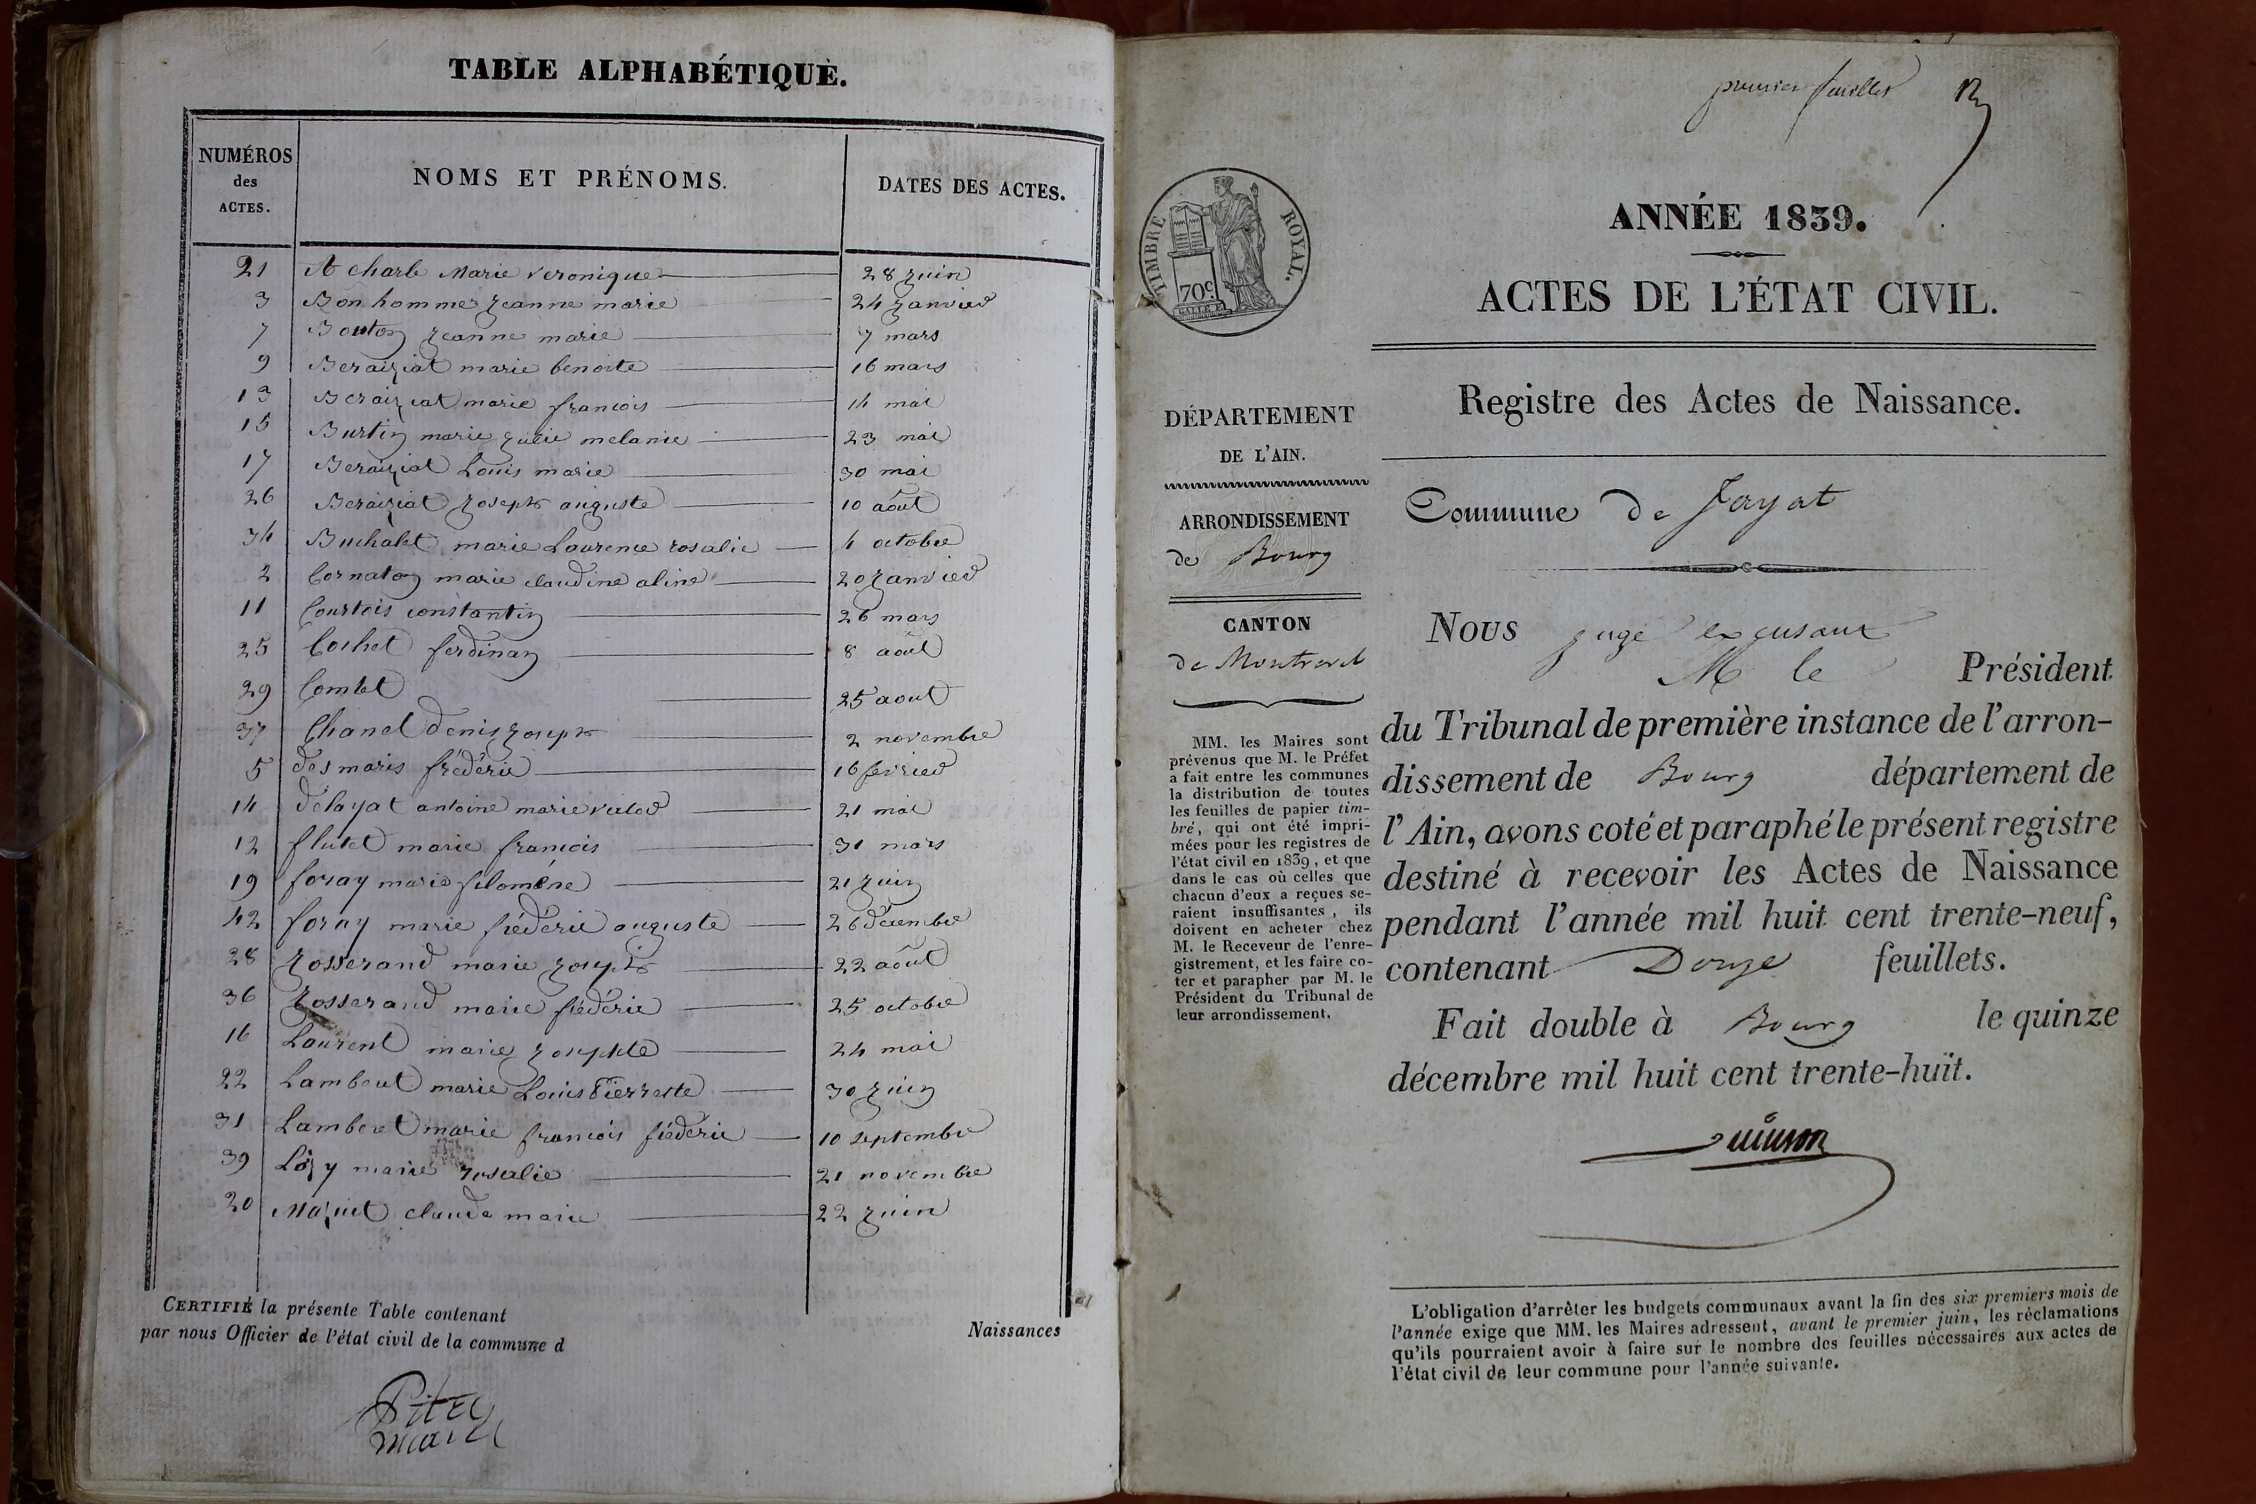 TABLE ALPHABÉTIQUE.
NUMÉROS des ACTES. NOMS ET PRÉNOMS. DATES DES ACTES.
21 Acharle Marie veronique 28 juin
3 Bonhomme jeanne marie 24 janvier
7 Bouton jeanne marie 7 mars
9 Beraiziat marie benoite 16 mars
13 Beraiziat marie francois 14 mai
15 Burtin marie julie melanie 23 mai
17 Beraiziat Louis marie 30 mai
26 Beraiziat joseph auguste 10 août
34 Buchalet marie Laurence rosalie 4 octobre
2 Cornaton marie claudine aline 20 janvier
11 Courtois constantin 26 mars
25 Cochet ferdinan 8 août
29 Combet 25 aout
37 Chanel denis joseph 2 novembre
5 desmaris frédéric 16 fevrier
14 délayat antoine marie victor 21 mai
12 flutet marie francois 31 mars
19 foray marie filoméne 21 juin
42 foray marie frédéric auguste 26 décembre
28 josserand marie joseph 22 août
36 josserand marie frédéric 25 octobre
16 Laurent marie josephte 24 mai
22 Lambert marie Louis Pierrette 30 juin
31 Lamberet marie francois frédéric 10 septembre
39 Lozy marie rosalie 21 novembre
20 Mazuit claude marie 22 juin
CERTIFIÉ la présente Table contenant Naissances
par nous Officier de l'état civil de la commune d
Pitre
maire
premier feuillet
TIMBRE ROYAL.
70c
ANNÉE 1839.
ACTES DE L'ÉTAT CIVIL.
Registre des Actes de Naissance.
DÉPARTEMENT
DE L'AIN.
ARRONDISSEMENT
de Bourg
CANTON
de Montrevel
MM. les Maires sont
prévenus que M. le Préfet
a fait entre les communes
la distribution de toutes
les feuilles de papier tim-
bré, qui ont été impri-
mées pour les registres de
l'état civil en 1839, et que
dans le cas où celles que
chacun d'eux a reçues se-
raient insuffisantes, ils
doivent en acheter chez
M. le Receveur de l'enre-
gistrement, et les faire co-
ter et parapher par M. le
Président du Tribunal de
leur arrondissement.
Commune de Jayat
Nous juge excusant
M le Président
du Tribunal de première instance de l'arron-
dissement de Bourg département de
l'Ain, avons coté et paraphé le présent registre
destiné à recevoir les Actes de Naissance
pendant l'année mil huit cent trente-neuf,
contenant Douze feuillets.
Fait double à Bourg le quinze
décembre mil huit cent trente-huit.
L'obligation d'arrêter les budgets communaux avant la fin des six premiers mois de
l'année exige que MM. les Maires adressent, avant le premier juin, les réclamations
qu'ils pourraient avoir à faire sur le nombre des feuilles nécessaires aux actes de
l'état civil de leur commune pour l'année suivante.